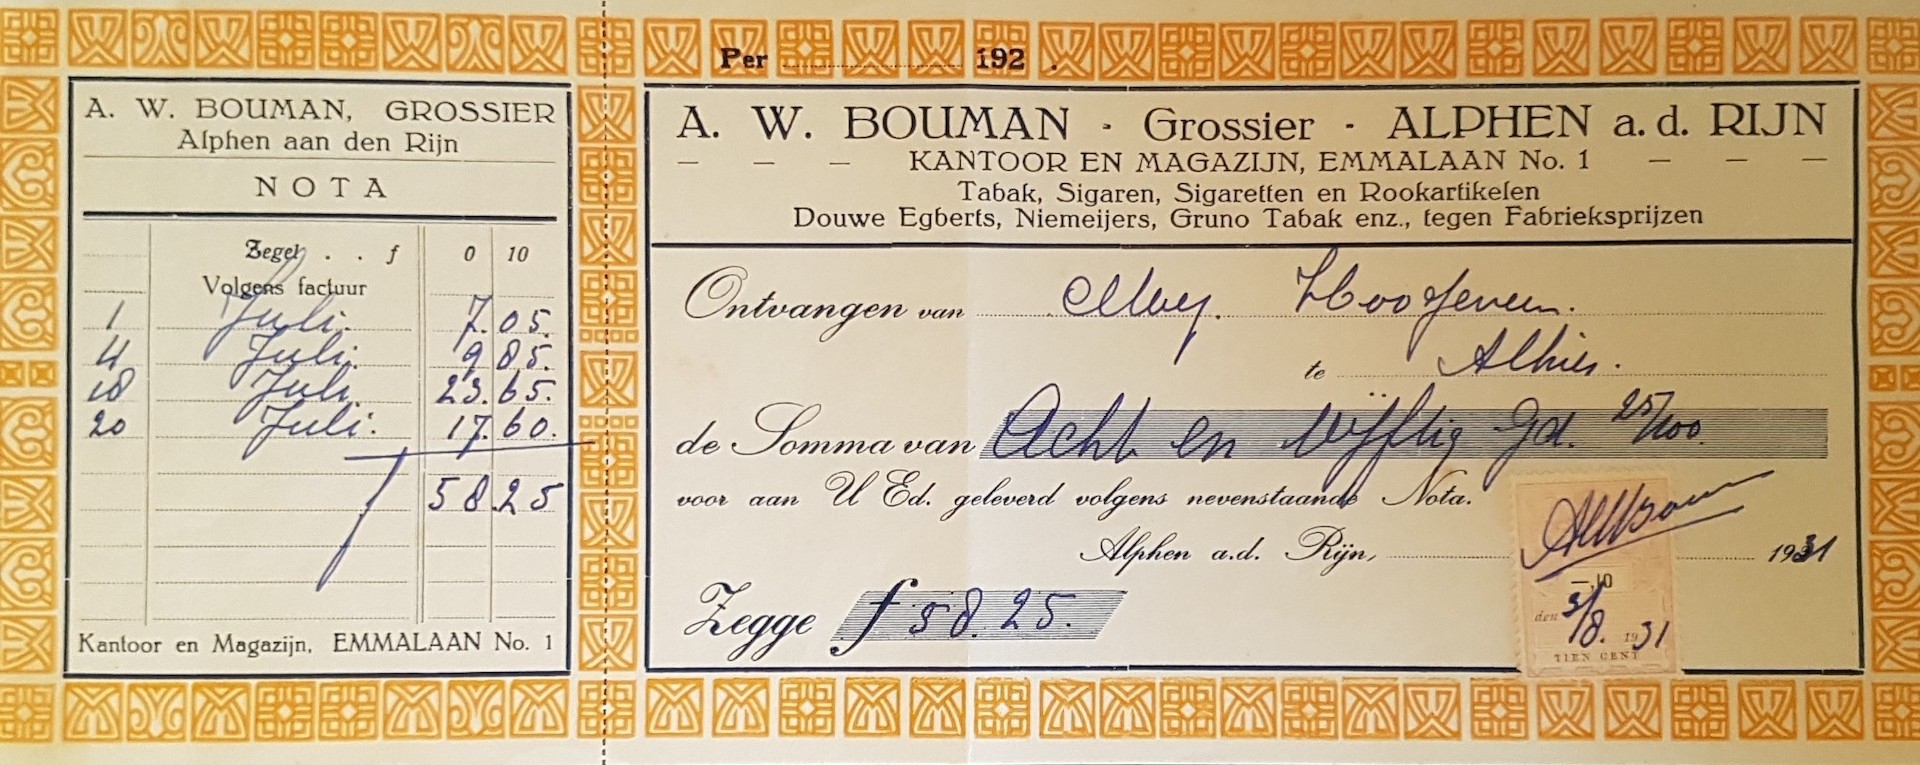 A. W. BOUMAN, GROSSIER
Alphen aan den Rijn
NOTA
Zegel . . f 0 10
Volgens factuur
1 Juli. 7.05.
4 Juli. 9 85.
18 Juli. 23.65.
20 Juli. 17.60.
58.25
Kantoor en Magazijn, EMMALAAN No. 1
Per 192 .
A. W. BOUMAN - Grossier - ALPHEN a. d. RIJN
— — — KANTOOR EN MAGAZIJN, EMMALAAN No. 1 — — —
Tabak, Sigaren, Sigaretten en Rookartikelen
Douwe Egberts, Niemeijers, Gruno Tabak enz., tegen Fabrieksprijzen
Ontvangen van Mej. Hoogeveen.
te Alhier.
de Somma van Acht en Vijftig Gd. 25/100.
voor aan U Ed. geleverd volgens nevenstaande Nota.
Alphen a.d. Rijn, 1931
Zegge f 58.25.
AWBouman
—.10
den 3/8. 1931
TIEN CENT